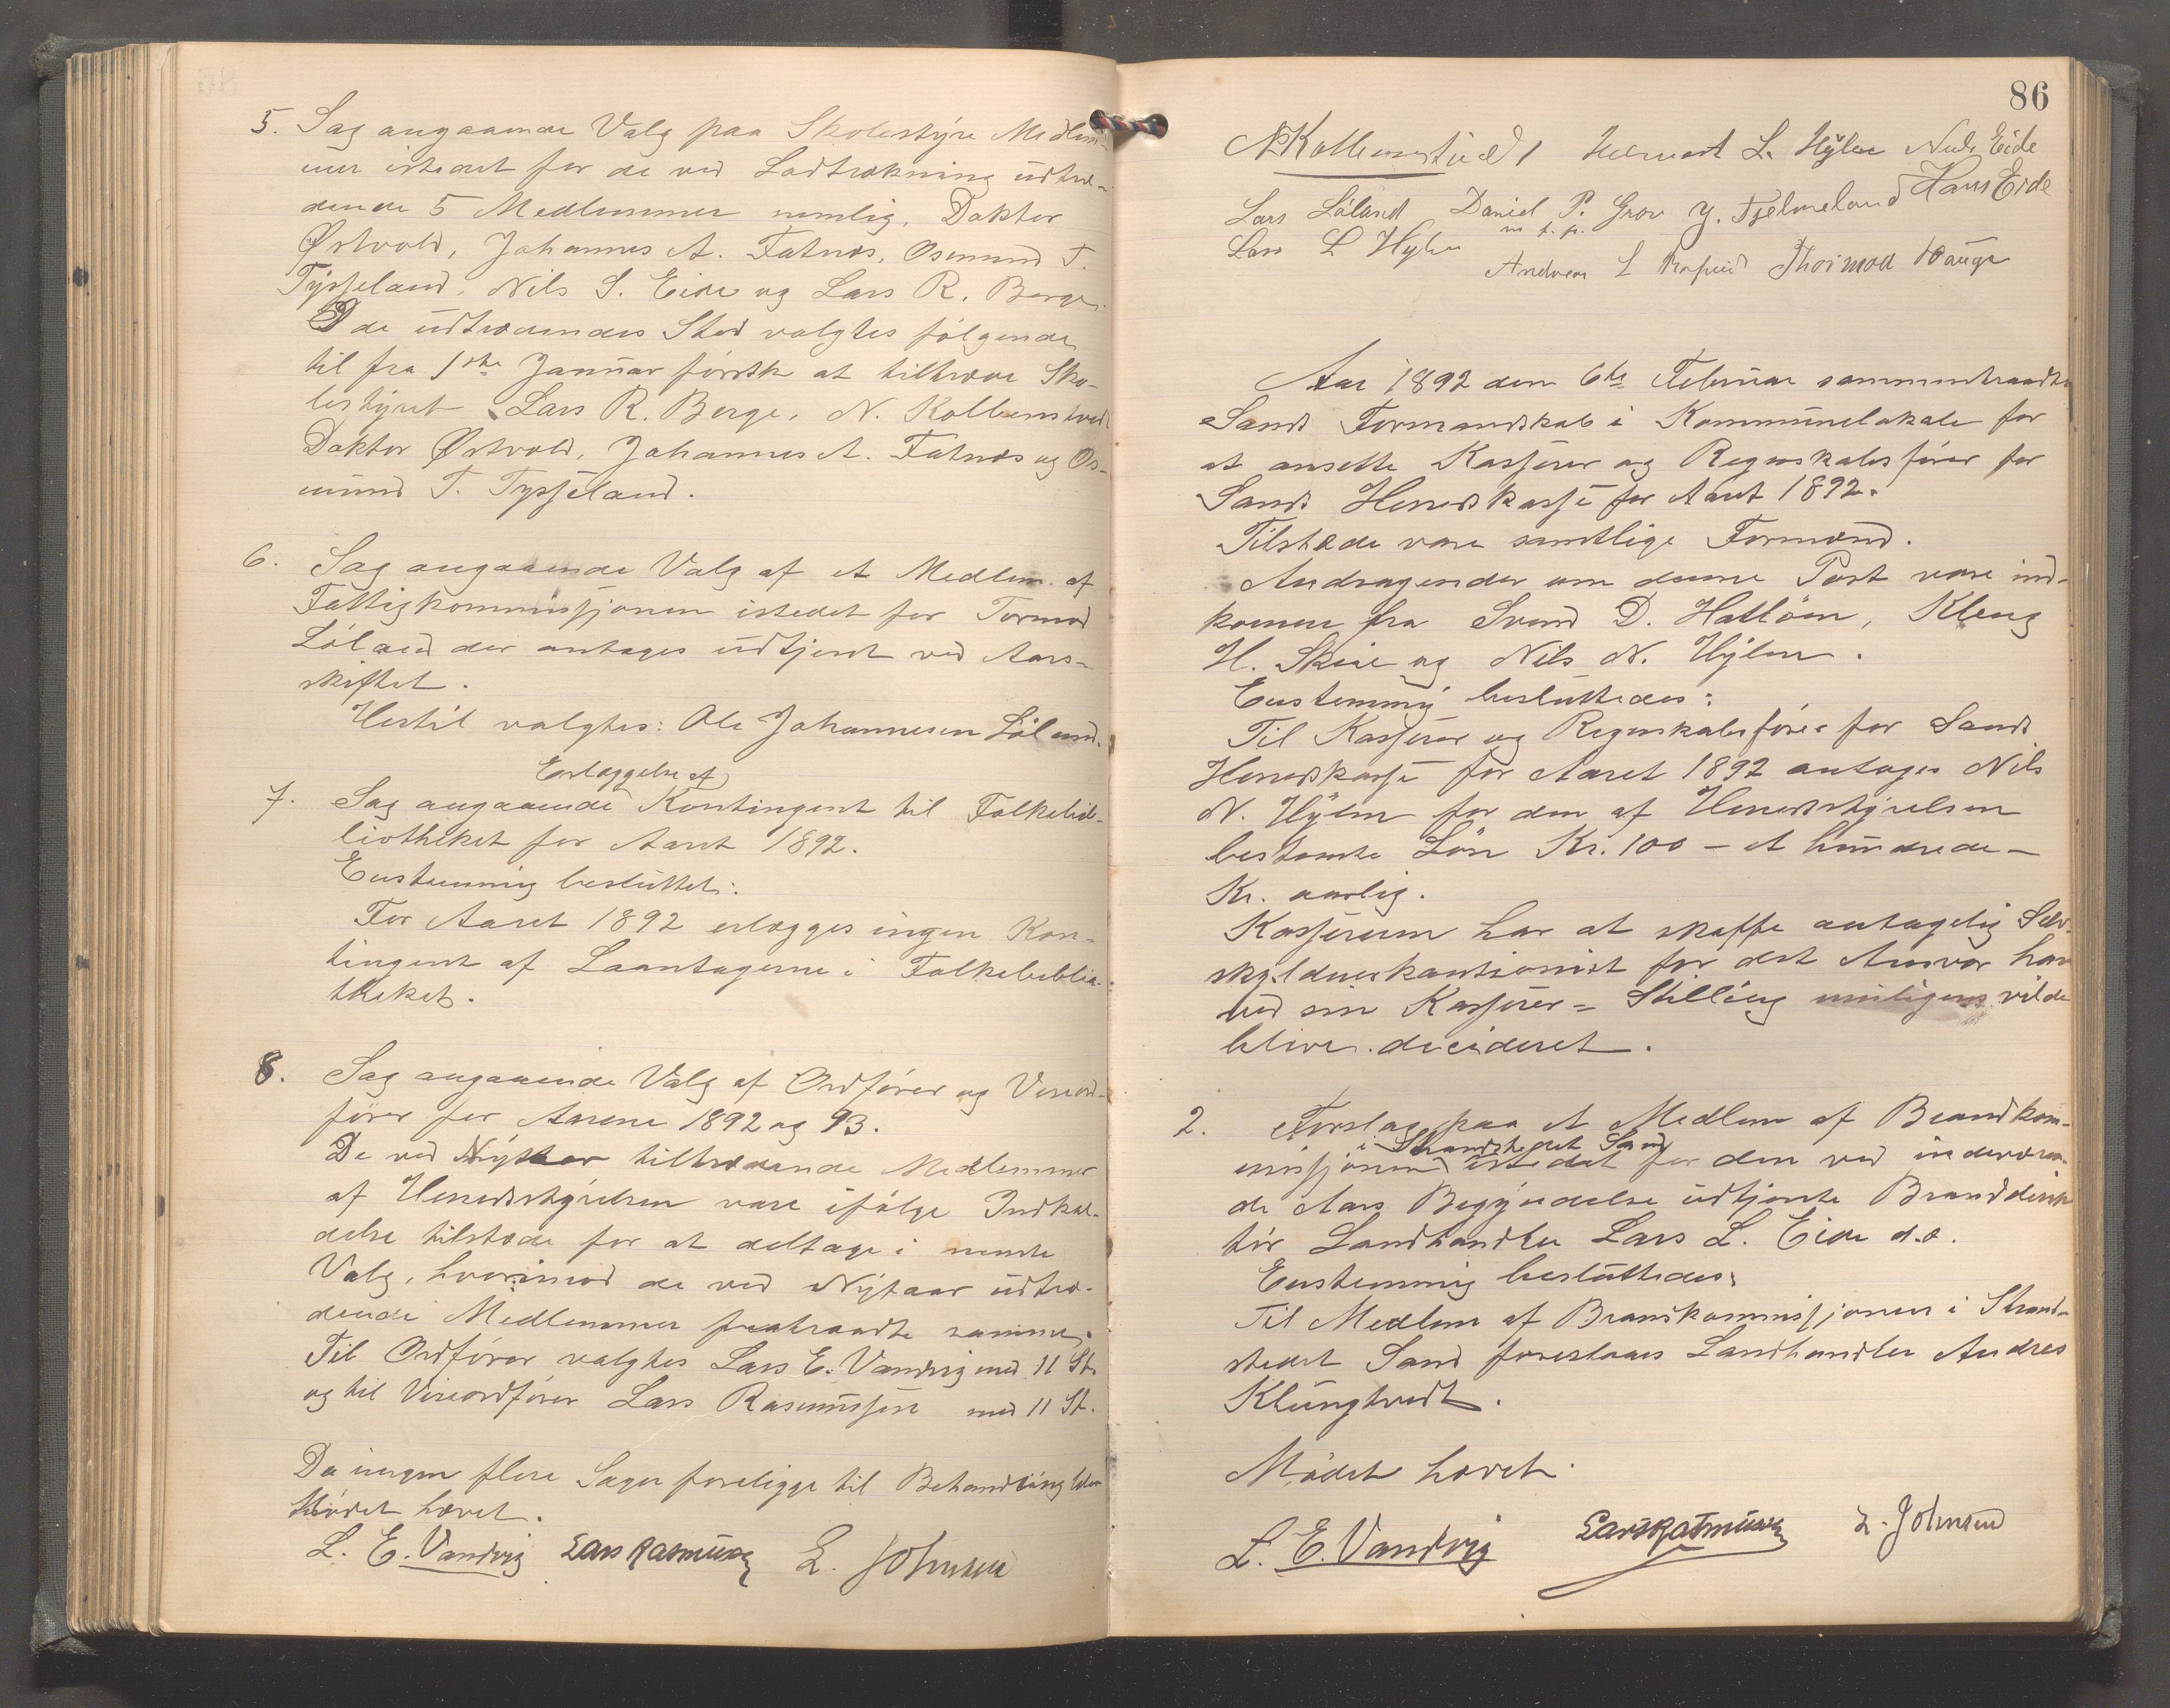 5. Sag angaaende Valg paa Skolestyre Medlem-
mer istedet for de ved Lodtrækning udtræ-
dende 5 Medlemmer nemlig, Doktor
Østvold, Johannes A. Fatnes, Osmund T.
Tysseland, Nils S. Eide og Lars R. Berge.
I de udtrædendes Sted valgtes følgende
til fra 1ste Januar førstk at tiltræde Sko-
lestyret Lars R. Berge, N. Kollemstvedt
Doktor Østvold, Johannes A. Fatnes og Os-
mund T. Tysseland.
6. Sag angaaende Valg af et Medlem af
Fattigkommissjonen istedet for Tormod
Løland der antages udtjent ved Aars-
skiftet.
Hertil valgtes: Ole Johannesen Løland.
Erlæggelse af
7. Sag angaaende Kontingent til Folkebib-
liotheket for Aaret 1892.
Enstemmig besluttet:
For Aaret 1892 erlægges ingen Kon-
tingent af Laantagerne i Folkebiblio-
theket.
8. Sag angaaende Valg af Ordfører og Viceord-
fører for Aarene 1892 og 93.
De ved Nytaar tiltrædende Medlemmer
af Herredsstyrelsen vare ifølge Indkal-
delse tilstede for at deltage i nevnte
Valg, hvorimod de ved Nytaar udtræ-
dende Medlemmer fratraadte samme.
Til Ordfører valgtes Lars E. Vandvig med 11 St.
og til Viceordfører Lars Rasmussen med 11 St.
Da ingen flere Sager foreligge til Behandling blev
Mødet hævet.
L. E. Vandvig Lars Rasmussen L. Johnsen
86
N Kollemstvedt L. Hylen Nils Eide
Lars Løland Daniel P. Grov Y. Fjelmeland Hans Eide
m. f. p.
Lars L Hylen
Andreas L Thormod Hauge
Aar 1892 den 6te Februar sammentraadte
Sands Formandskab i Kommunelokale for
at ansette Kasserer og Regnskabsfører for
Sands Herredskasse for Aaret 1892.
Tilstede vare samtlige Formænd.
Andragender om denne Post vare ind-
komne fra Svend D. Hatløen, Kleng
H. Skeie og Nils N. Hylen.
Enstemmig besluttedes:
Til Kasserer og Regnskabsfører for Sands
Herredskasse for Aaret 1892 antages Nils
N. Hylen for den af Herredsstyrelsen
bestemte Løn Kr. 100 – et hundrede –
Kr. aarlig.
Kassereren har at skaffe antagelig Selv-
skyldnerkautionist for det Ansvar han
ved sin Kasserer-Stilling muligens vilde
blive decideret.
2. Forslag paa et Medlem af Brandkom-
i Strandstedet Sand
missjonen istedet for den ved indeværen-
de Aars Begyndelse udtjente Branddirek-
tør Landhandler Lars L. Eide d.æ.
Enstemmig besluttedes:
Til Medlem af Brandkommissjonen i Strand-
stedet Sand foreslaaes Landhandler Andres
Klungtvedt.
Mødet hævet.
L. E. Vandvig Lars Rasmussen L. Johnsen